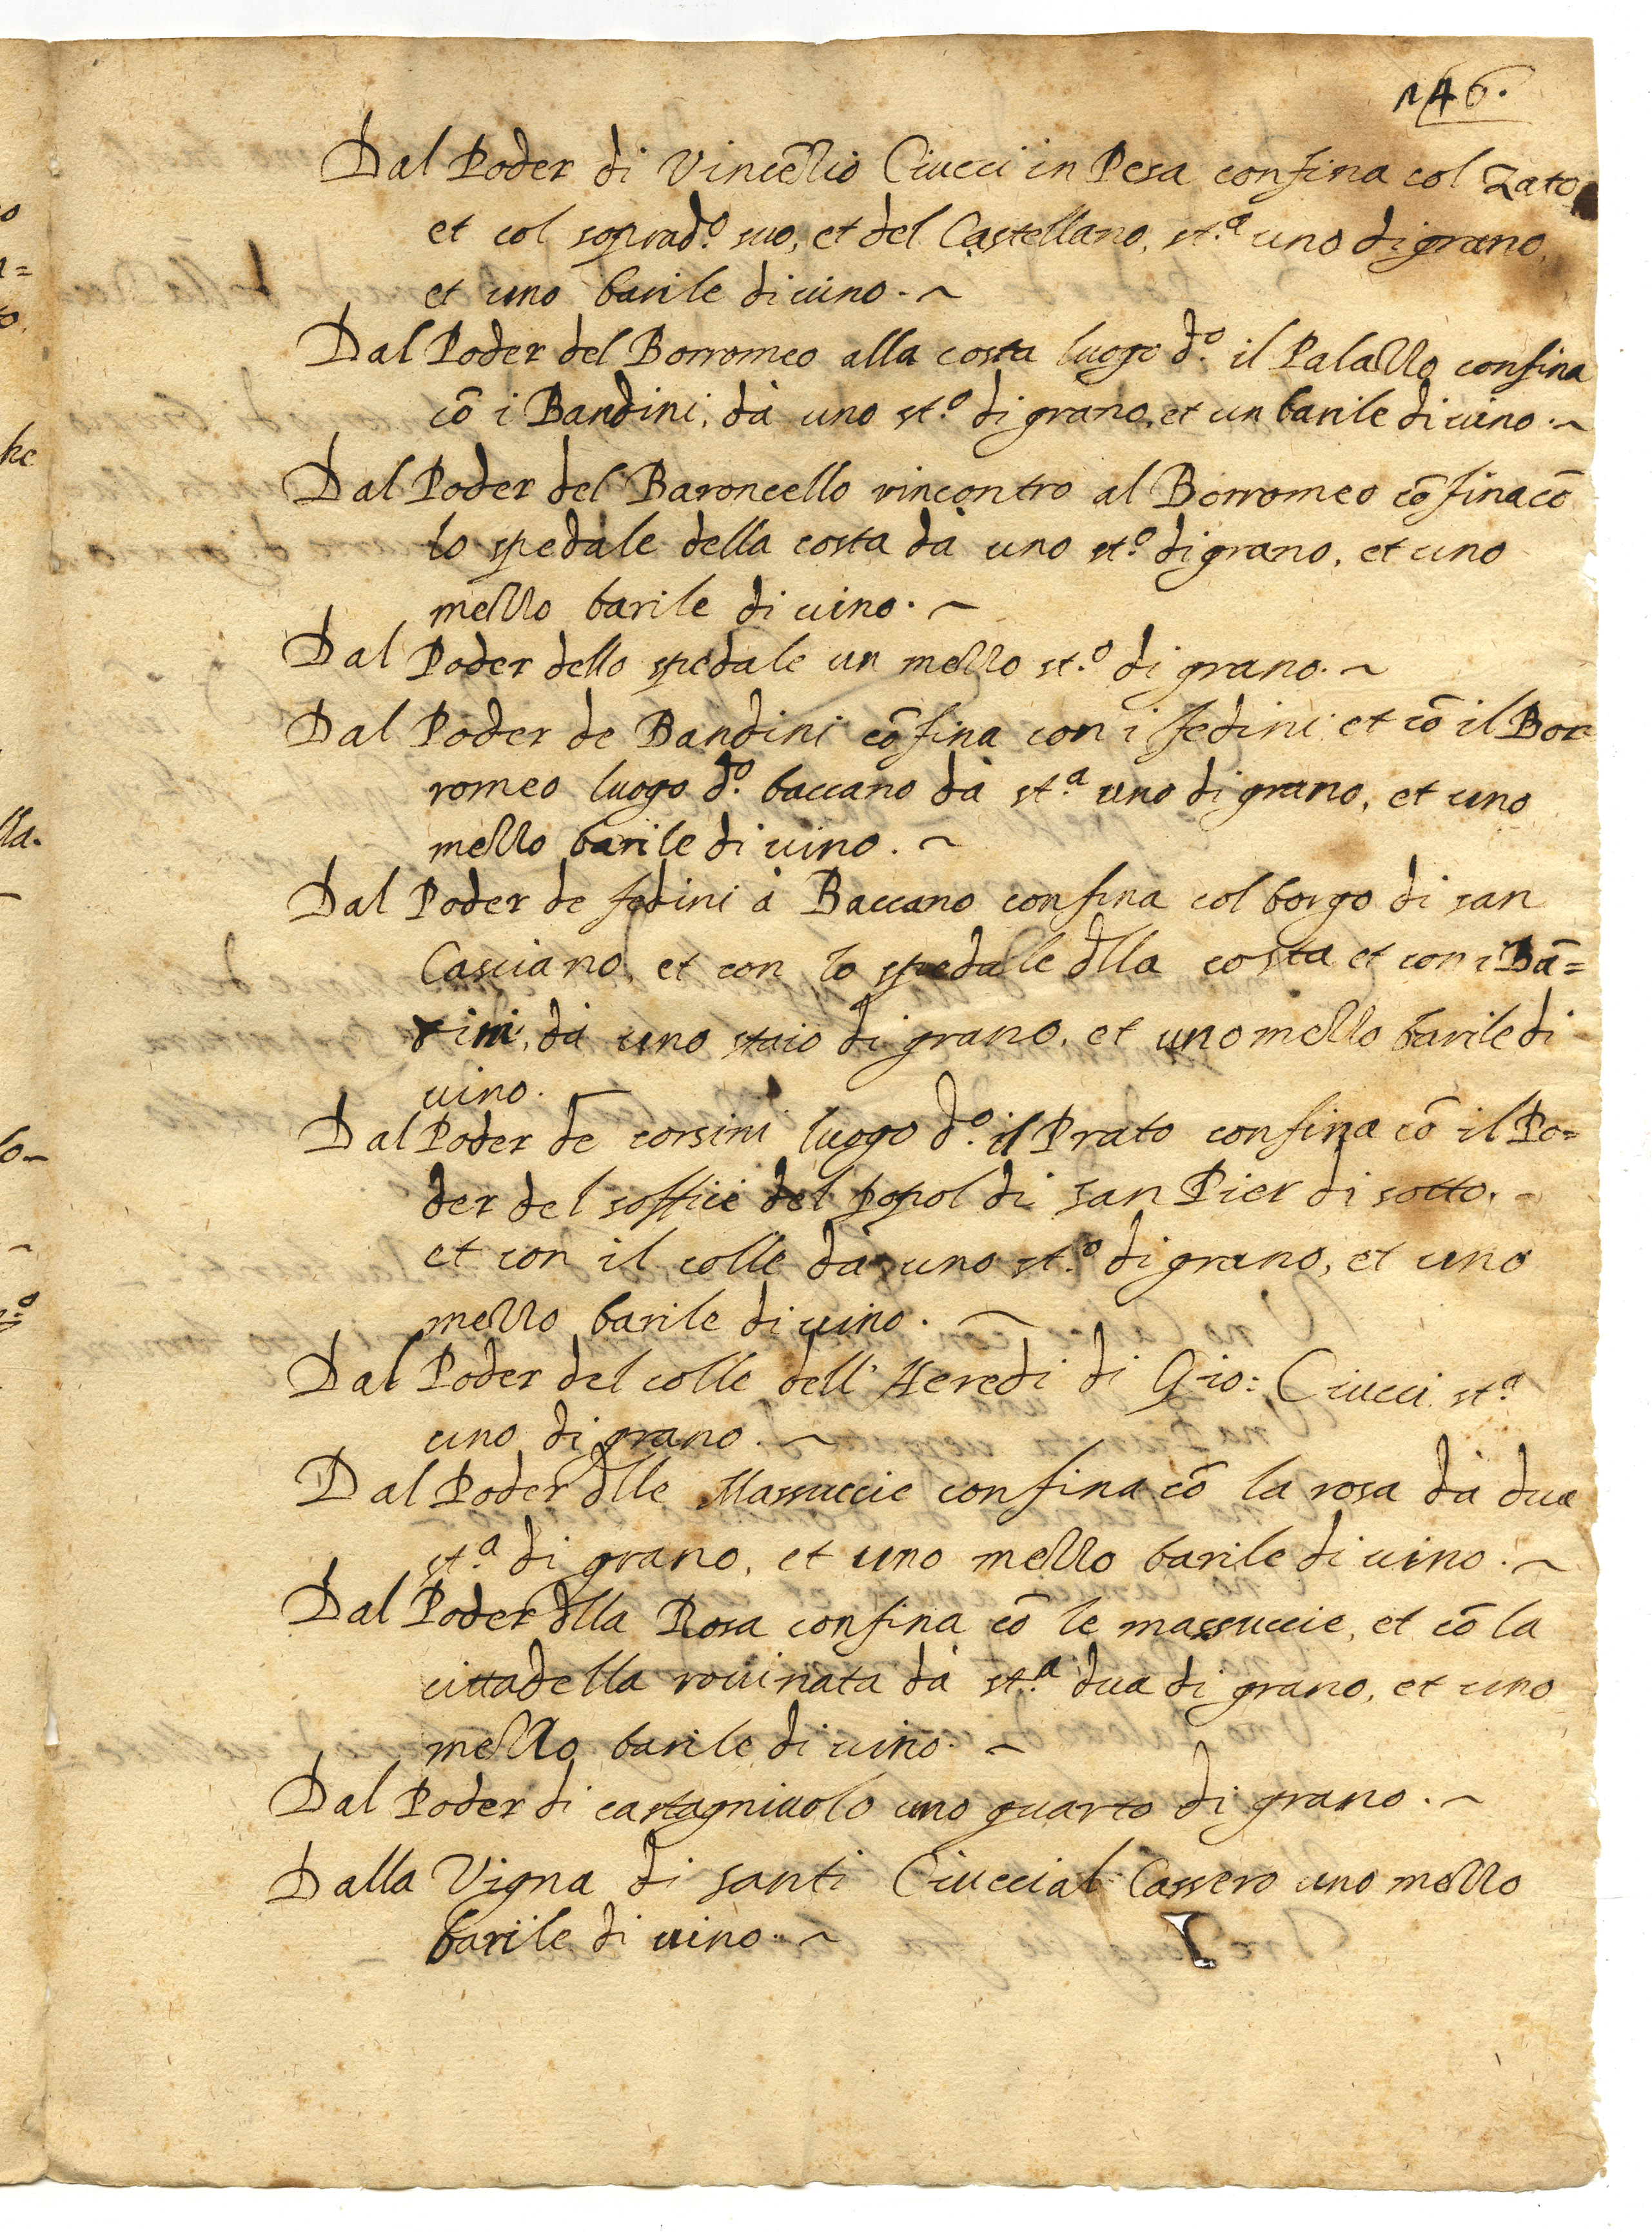 146.
Dal Poder di Vincẽzio Ciucci in Pesa confina col Zato
et col soprad.º suo, et del Castellano, st.ª uno di grano,
et uno barile di uino. ~
Dal Poder del Borromeo alla costa luogo d.º il Palazzo confina
cõ i Bandini, dà uno st.º di grano, et un barile di uino. ~
Dal Poder del Baroncello rincontro al Borromeo cõfina cõ
lo spedale della costa dà uno st.º di grano, et uno
mezzo barile di uino. ~
Dal Poder dello spedale un mezzo st.º di grano. ~
Dal Poder de Bandini cõfina con i fedini et cõ il Bor=
romeo luogo d.º baccano dà st.ª uno di grano, et uno
mezzo barile di uino. ~
Dal Poder de fedini à Baccano confina col borgo di san
Casciano, et con lo spedale dlla costa et con i Bã=
dini, dà uno staio di grano, et uno mezzo barile di
uino. ~
Dal Poder de corsini luogo d.º il Prato confina cõ il Po=
der del soffici del popol di san Pier di sotto,
et con il colle dà uno st.º di grano, et uno
mezzo barile di uino. ~
Dal Poder del colle dell' Heredi di Gio: Ciucci st.ª
uno di grano. ~
Dal Poder dlle Massuccie confina cõ la rosa dà dua
st.ª di grano, et uno mezzo barile di uino. ~
Dal Poder dlla Rosa confina cõ le massuccie, et cõ la
cittadella rouinata dà st.ª dua di grano, et uno
mezzo barile di uino. ~
Dal Poder di castagniuolo uno quarto di grano. ~
Dalla Vigna di santi Ciucci al Cassero uno mezzo
barile di uino. ~